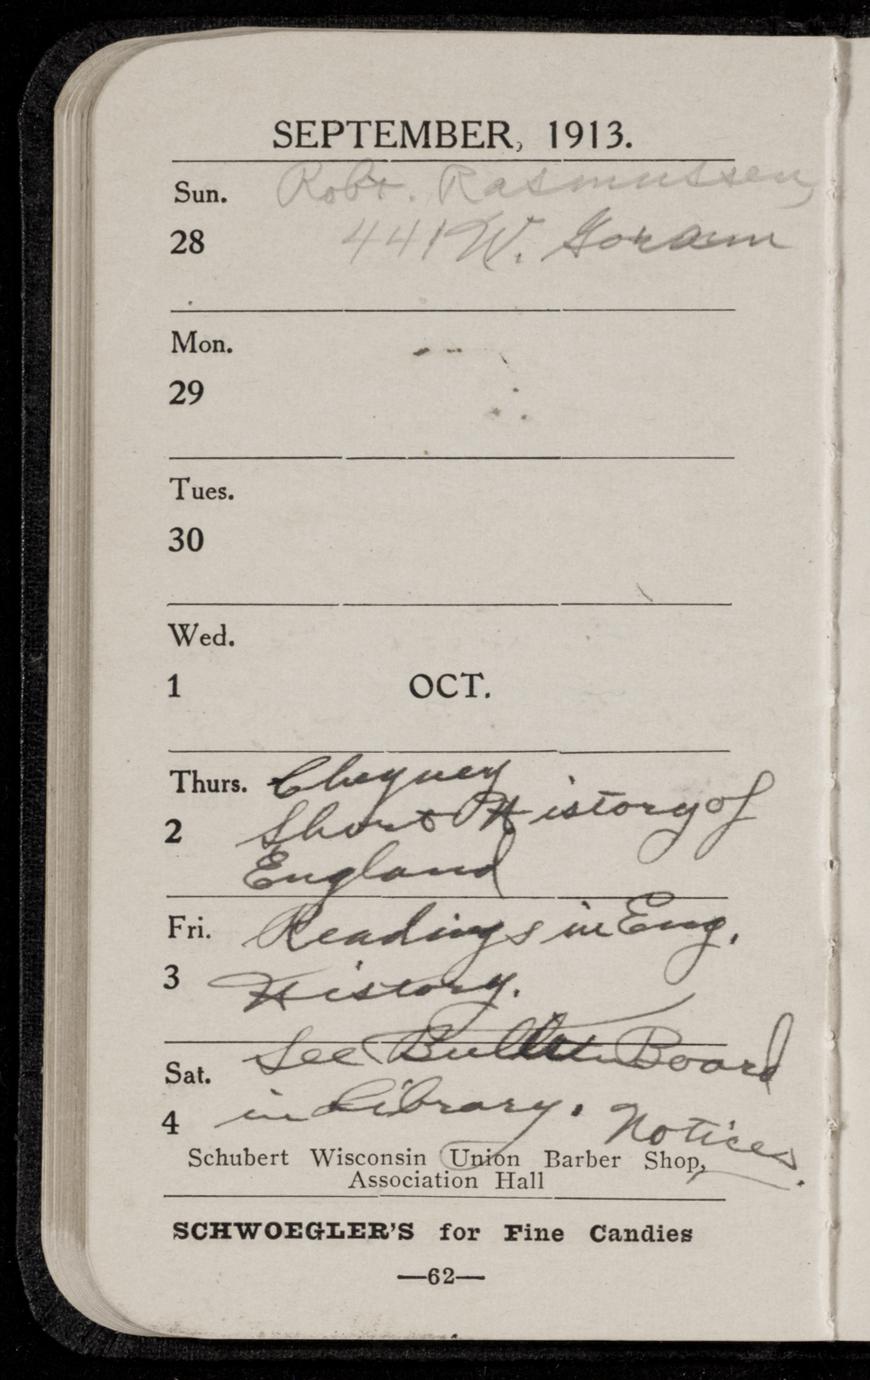 SEPTEMBER, 1913.
Sun. Robt. Rasmussen,
28 441 W. Goram
Mon.
29
Tues.
30
Wed.
1 OCT.
Thurs. Cheyney
2 Short History of
England
Fri. Readings in Eng.
3 History.
Sat. See Bulletin Board
4 in Library. Notices.
Schubert Wisconsin Union Barber Shop,
Association Hall
SCHWOEGLER'S for Fine Candies
—62—